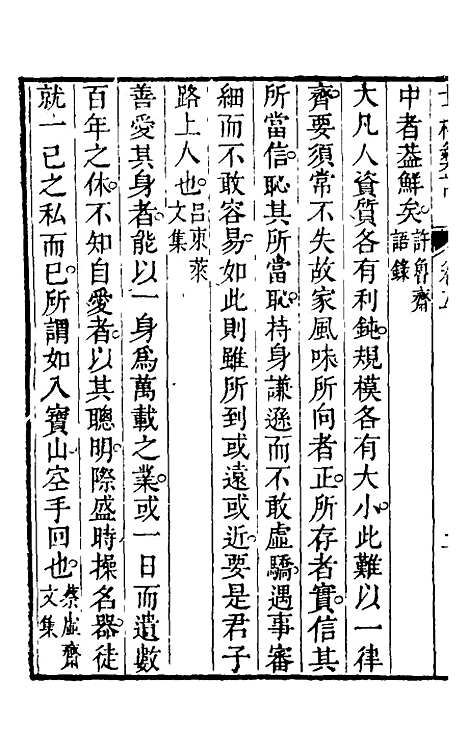 中者蓋鮮矣。許魯齋語錄
大凡人資質各有利鈍。規模各有大小。此難以一律
齊。要須常不失故家風味。所向者正。所存者實。信其
所當信。恥其所當恥。持身謙遜而不敢虛驕。遇事審
細而不敢容易。如此則雖所到或遠或近。要是君子
路上人也。呂東萊文集
善愛其身者。能以一身為萬載之業。或一日而遺數
百年之休。不知自愛者。以其聰明。際盛時操名器。徒
就一己之私而已。所謂如入寶山空手回也。蔡虛齋文集